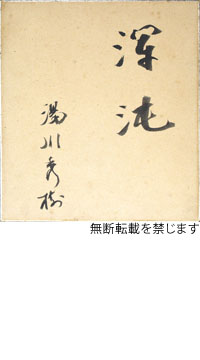 渾沌
湯川秀樹
無断転載を禁じます